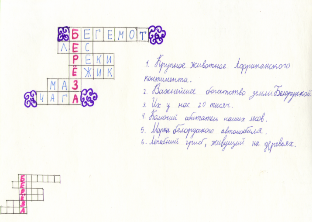 БЕГЕМОТ
ЛЕС
РЕКИ
ЁЖИК
МАЗ
ЧАГА
1. Крупное животное Африканского
континента.
2. Важнейшее богатство земли Белорусской.
3. Их у нас 20 тысяч.
4. Колючий обитатель наших лесов.
5. Марка белорусского автомобиля.
6. Лечебный гриб, живущий на деревьях.
БЕРЁЗА